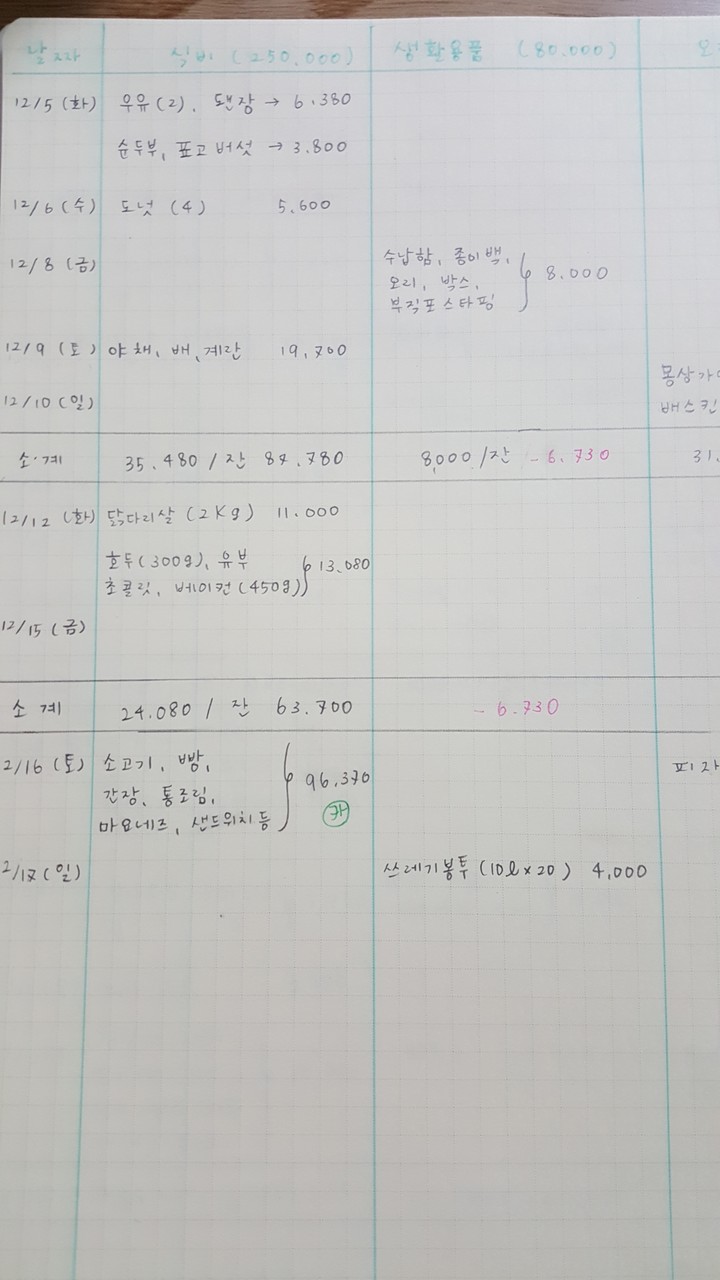 날짜 식비 (250,000) 생활용품 (80.000)
12/5 (화) 우유(2), 된장 → 6.380
순두부, 표고버섯 → 3.800
12/6 (수) 도넛 (4) 5.600
12/8 (금) 수납함, 종이백,
오리, 박스, 8.000
부직포스타핑
12/9 (토) 야채, 배, 계란 19,700
12/10 (일) 몽상가
배스킨
소계 35.480 / 잔 87.780 8,000 / 잔 - 6.730 31.
12/12 (화) 닭다리살 (2Kg) 11.000
호두(300g), 유부 13.080
초콜릿, 베이컨(450g)
12/15 (금)
소계 24.080 / 잔 63.700 - 6.730
2/16 (토) 소고기, 빵, 피자
간장, 통조림, 96,370
마요네즈, 샌드위치 등 카
2/17 (일) 쓰레기봉투 (10ℓ×20) 4,000